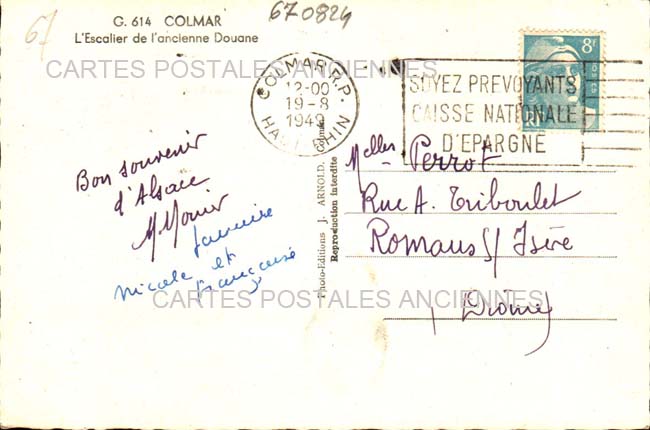 67
670824
G. 614 COLMAR
L'Escalier de l'ancienne Douane
CARTES POSTALES ANCIENNES
COLMAR R.P.
12-00
19-8
1949
HAUT-RHIN
SOYEZ PREVOYANTS
CAISSE NATIONALE
D'EPARGNE
8F
POSTES
Bon souvenir
d'Alsace
M Monier
Nicole et
Françoise
Photo-Editions J. ARNOLD, Colmar
Reproduction interdite
Melles Perrot
Rue A. Triboulet
Romans s/ Isère
(Drôme)
CARTES POSTALES ANCIENNES